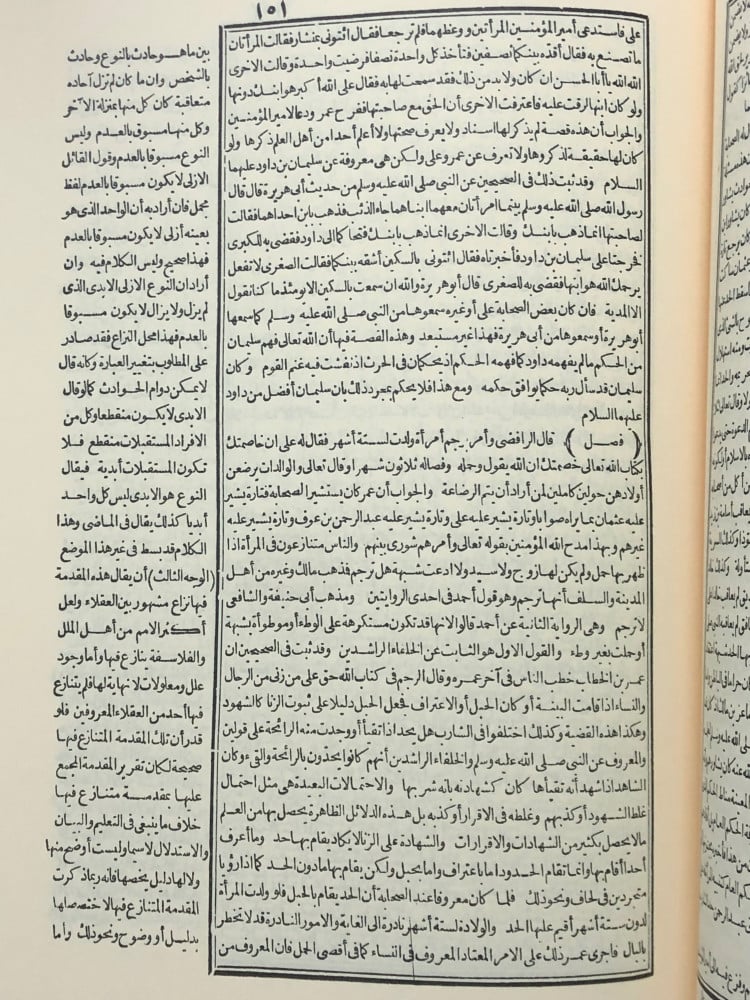 ١٥١
على فاستدعى أمير المؤمنين المرأتين و وعظهما فلم ترجعا فقال ائتونى بمنشار فقالت المرأتان
ما تصنع به فقال أقده بينكما نصفين فتأخذ كل واحدة نصفا فرضيت واحدة وقالت الاخرى
الله الله يا أبا الحسن ان كان ولا بد من ذلك فقد سمحت لها به فقال على الله أكبر هو ابنك دونها
ولو كان ابنها لرقت عليه فاعترفت الاخرى أن الحق مع صاحبتها ففرح عمر ودعا لامير المؤمنين
والجواب أن هذه قصة لم يذكر لها اسناد ولا يعرف صحتها ولا أعلم أحدا من أهل العلم ذكرها ولو
كان لها حقيقة لذكروها ولا تعرف عن عمر و على ولكن هى معروفة عن سليمان بن داود عليهما
السلام وقد ثبت ذلك فى الصحيحين عن النبى صلى الله عليه وسلم من حديث أبى هريرة قال قال
رسول الله صلى الله عليه وسلم بينما امرأتان معهما ابناهما جاء الذئب فذهب بابن احداهما فقالت
لصاحبتها انما ذهب بابنك وقالت الاخرى انما ذهب بابنك فتحاكما الى داود فقضى به للكبرى
فخرجتا على سليمان بن داود فأخبرتاه فقال ائتونى بالسكين أشقه بينكما فقالت الصغرى لا تفعل
يرحمك الله هو ابنها فقضى به للصغرى قال أبو هريرة والله ان سمعت بالسكين الا يومئذ ما كنا نقول
الا المدية فان كان بعض الصحابة على أو غيره سمعوها من النبى صلى الله عليه وسلم كما سمعها
أبو هريرة أو سمعوها من أبى هريرة فهذا غير مستبعد وهذه القصة فيها أن الله تعالى فهم سليمان
من الحكم ما لم يفهمه داود كما فهمه الحكم اذ يحكمان فى الحرث اذ نفشت فيه غنم القوم وكان
سليمان قد سأل ربه حكما يوافق حكمه ومع هذا فلا يحكم بمجرد ذلك بان سليمان أفضل من داود
عليهما السلام
﴿ فصل ﴾ قال الرافضى وأمر برجم امرأة ولدت لستة أشهر فقال له على ان خاصمتك
بكتاب الله تعالى خصمتك ان الله يقول وحمله وفصاله ثلاثون شهرا وقال تعالى والوالدات يرضعن
أولادهن حولين كاملين لمن أراد أن يتم الرضاعة والجواب أن عمر كان يستشير الصحابة فتارة يشير
عليه عثمان بما يراه صوابا وتارة يشير عليه على وتارة يشير عليه عبد الرحمن بن عوف وتارة يشير عليه
غيرهم وبهذا مدح الله المؤمنين بقوله تعالى وأمرهم شورى بينهم والناس متنازعون فى المرأة اذا
ظهر بها حمل ولم يكن لها زوج ولا سيد ولا ادعت شبهة هل ترجم فذهب مالك وغيره من أهل
المدينة والسلف أنها ترجم وهو قول أحمد فى احدى الروايتين ومذهب أبى حنيفة والشافعى
لا ترجم وهى الرواية الثانية عن أحمد قالوا لانها قد تكون مستكرهة على الوطء أو موطوأة بشبهة
أو حملت بغير وطء والقول الاول هو الثابت عن الخلفاء الراشدين وقد ثبت فى الصحيحين ان
عمر بن الخطاب خطب الناس فى آخر عمره وقال الرجم فى كتاب الله حق على من زنى من الرجال
والنساء اذا قامت البينة أو كان الحبل أو الاعتراف فجعل الحبل دليلا على ثبوت الزنا كالشهود
وهكذا هذه القضية وكذلك اختلفوا فى الشارب هل يحد اذا تقيأ أو وجدت منه الرائحة على قولين
والمعروف عن النبى صلى الله عليه وسلم والخلفاء الراشدين أنهم كانوا يحدّون بالرائحة والقىء وكان
الشاهد اذا شهد أنه تقيأها كان كشهادته بانه شربها والاحتمالات البعيدة هى مثل احتمال
غلط الشهود أو كذبهم وغلطه فى الاقرار أو كذبه بل هذه الدلائل الظاهرة يحصل بها من العلم
ما لا يحصل بكثير من الشهادات والاقرارات والشهادة على الزنا لا يكاد يقام بها حد وما أعرف
أحدا أقام بها وانما تقام الحدود اما باعتراف واما بحبل ولكن يقام بها مادون الحد كما اذا رؤيا
متجردين فى لحاف ونحو ذلك فلما كان معروفا عند الصحابة أن الحد يقام بالحبل فلو ولدت المرأة
لدون ستة أشهر أقيم عليها الحد والولادة لستة أشهر نادرة الى الغاية والامور النادرة قد لا تخطر
بالبال فاجرى عمر ذلك على الامر المعتاد المعروف فى النساء كما فى أقصى الحمل فان المعروف من
بين ما هو حادث بالنوع وحادث
بالشخص وان ما كان لم تزل آحاده
متعاقبة كان كل منها بمنزلة الآخر
وكل منها مسبوق بالعدم وليس
النوع مسبوقا بالعدم وقول القائل
الازلى لا يكون مسبوقا بالعدم لفظ
مجمل فان أراد به أن الواحد الذى هو
بعينه أزلى لا يكون مسبوقا بالعدم
فهذا صحيح وليس الكلام فيه وان
أراد ان النوع الازلى الابدى الذى
لم يزل ولا يزال لا يكون مسبوقا
بالعدم فهذا محل النزاع فقد صادر
على المطلوب بتغيير العبارة وكأنه قال
لا يمكن دوام الحوادث كما لو قال
الابدى لا يكون منقطعا وكل من
الافراد المستقبلات منقطع فلا
تكون المستقبلات أبدية فيقال
النوع هو الابدى ليس كل واحد
أبديا كذلك يقال فى الماضى وهذا
الكلام قد بسط فى غير هذا الموضع
(الوجه الثالث) أن يقال هذه المقدمة
فيها نزاع مشهور بين العقلاء ولعل
أكثر الامم من أهل الملل
والفلاسفة ينازع فيها وأما وجود
علل ومعلولات لا نهاية لها فلم يتنازع
فيها أحد من العقلاء المعروفين فلو
قدر أن تلك المقدمة المتنازع فيها
صحيحة لكان تقرير المقدمة المجمع
عليها بمقدمة متنازع فيها
خلاف ما ينبغى فى التعليم والبيان
والاستدلال لا سيما وليست أوضح منها
ولا لها دليل يخصها فانه ربما ذكرت
المقدمة المتنازع فيها لاختصاصها
بدليل أو وضوح ونحو ذلك وأما